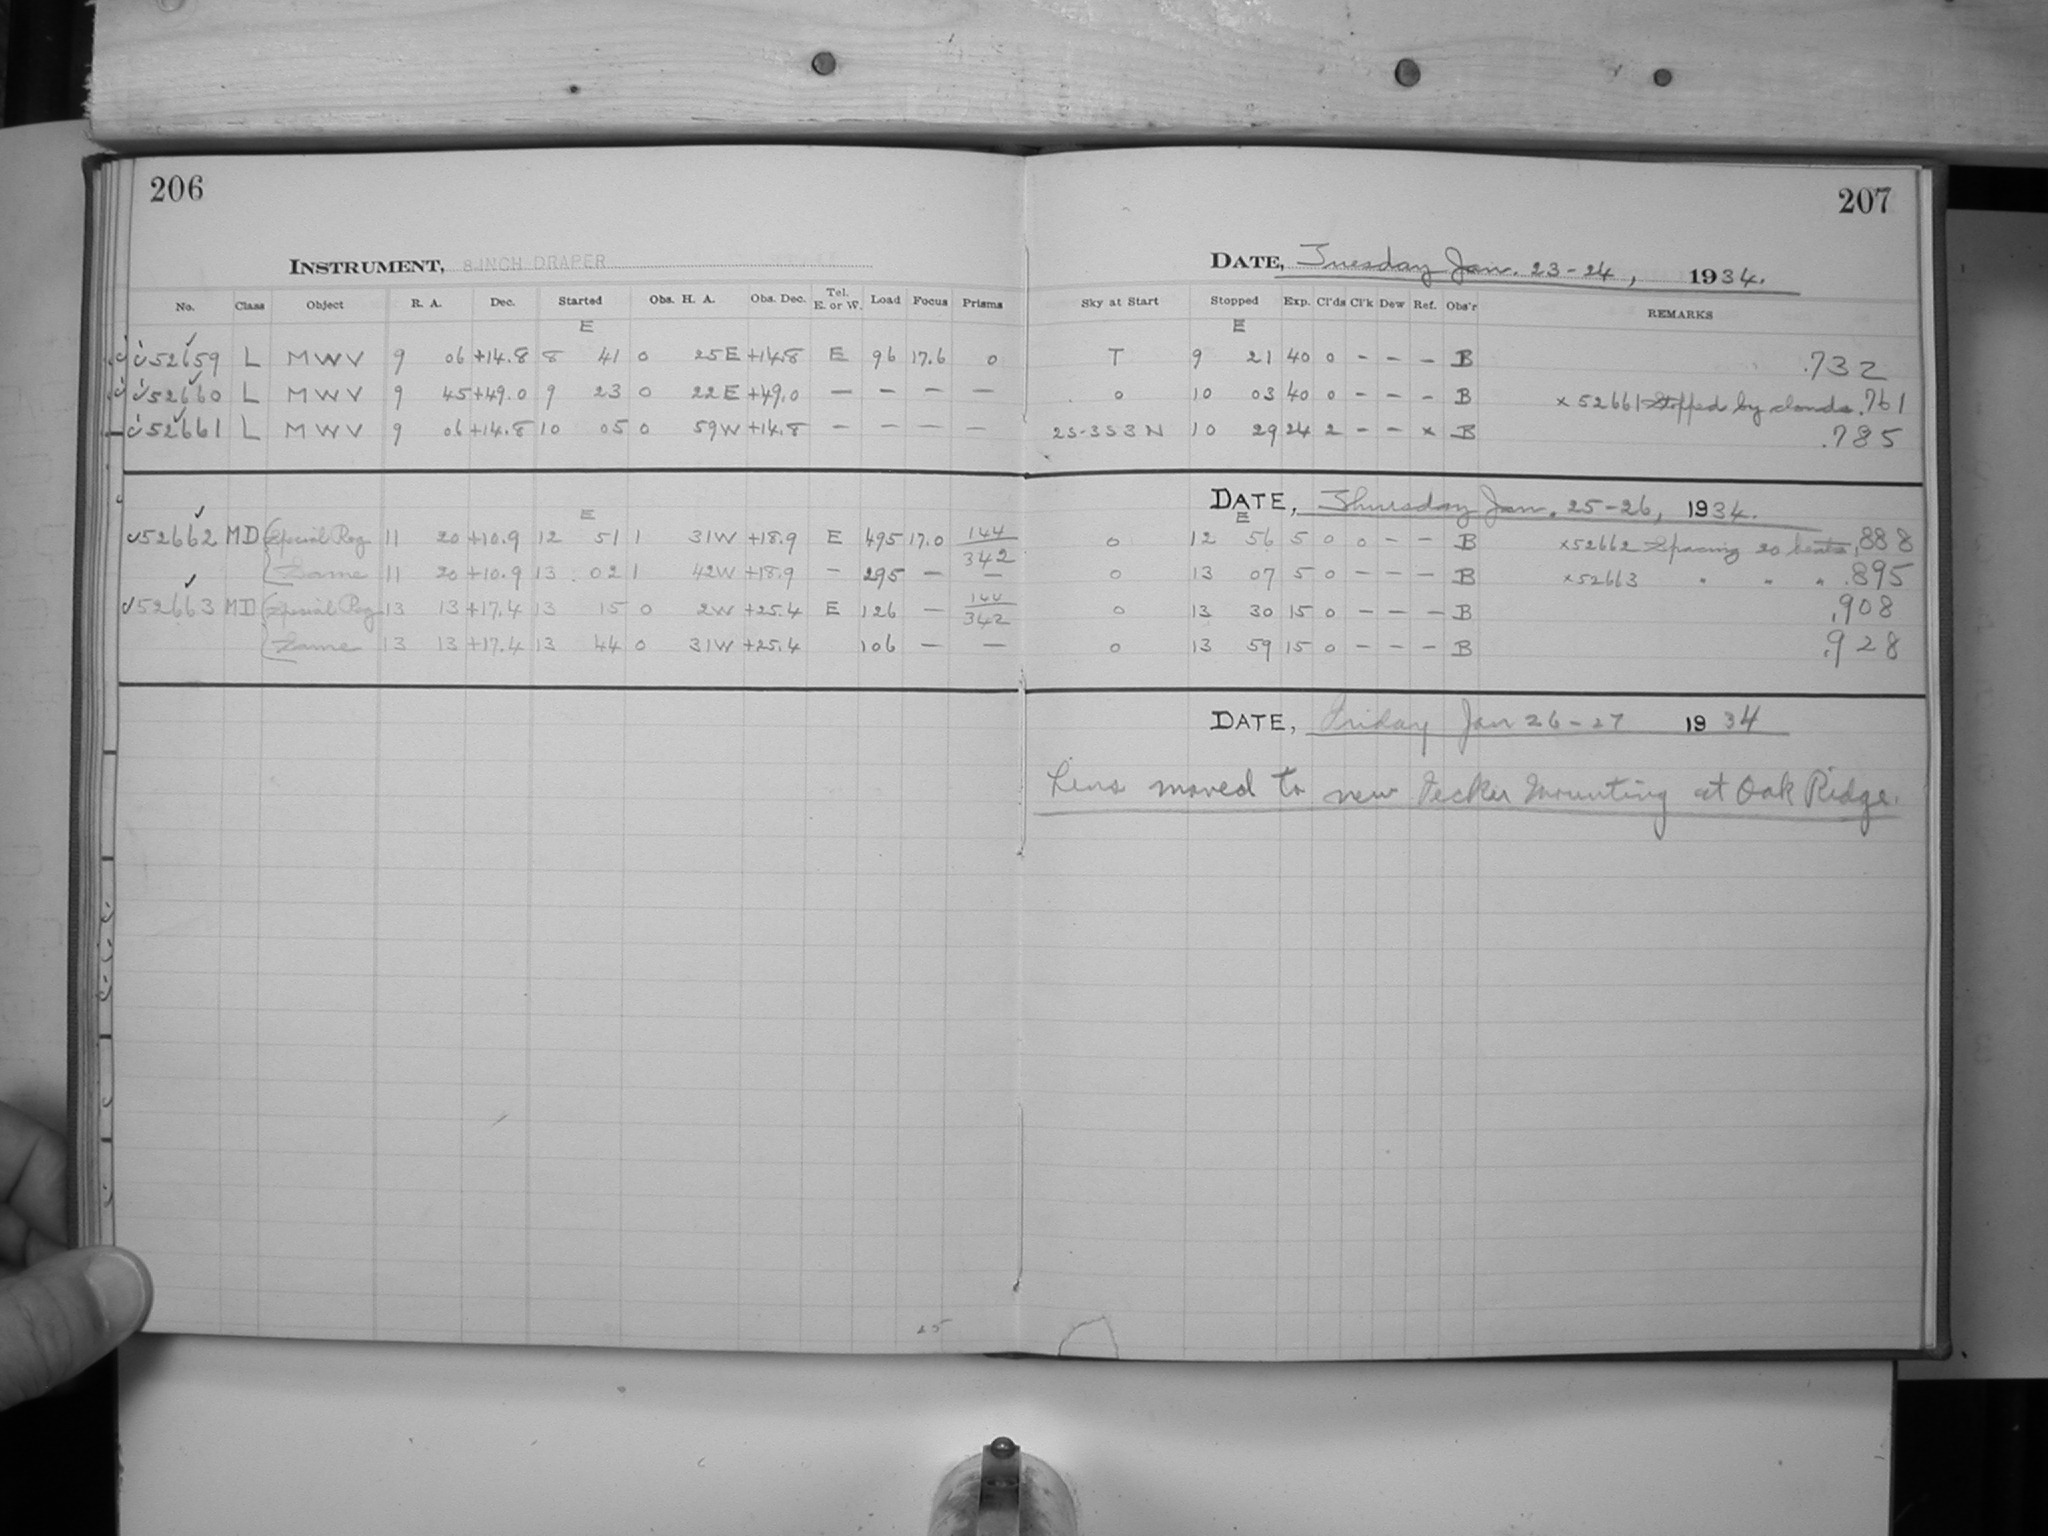 206
207
INSTRUMENT, 8 INCH DRAPER
DATE, Tuesday Jan. 23-24, 1934.
No. Class Object R. A. Dec. Started Obs. H. A. Obs. Dec. Tel. E. or W. Load Focus Prisms Sky at Start Stopped Exp. Cl'ds Cl'k Dew Ref. Obs'r REMARKS
E E
52659 L MWV 9 06 +14.8 8 41 0 25E +14.8 E 96 17.6 0 T 9 21 40 0 - - - B .732
52660 L MWV 9 45 +49.0 9 23 0 22E +49.0 - - - - 0 10 03 40 0 - - - B x 52661 Stopped by clouds .761
52661 L MWV 9 06 +14.8 10 05 0 59W +14.8 - - - - 2S-3S3N 10 29 24 2 - - x B .785
DATE, Thursday Jan. 25-26, 1934.
E E
52662 MD Special Reg 11 20 +10.9 12 51 1 31W +18.9 E 495 17.0 144/342 0 12 56 5 0 0 - - B x52662 Spacing 20 beats .888
Same 11 20 +10.9 13 02 1 42W +18.9 - 295 - - 0 13 07 5 0 - - - B x52663 " " " .895
52663 MD Special Reg 13 13 +17.4 13 15 0 2W +25.4 E 126 - 144/342 0 13 30 15 0 - - - B .908
Same 13 13 +17.4 13 44 0 31W +25.4 106 - - 0 13 59 15 0 - - - B .928
DATE, Friday Jan 26-27 1934
Lens moved to new Fecker Mounting at Oak Ridge.
25